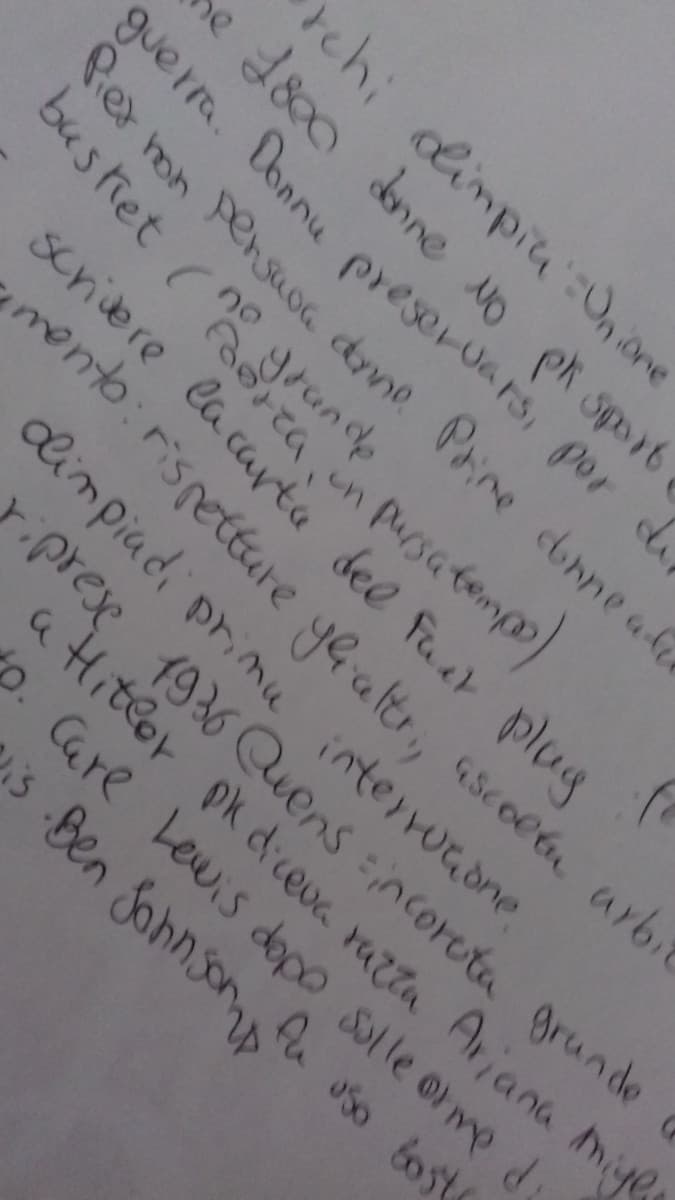 rchi olimpia = Unione
ne 1800 donne NO pk sport
guerra. Donna preservarsi per
Pier non pensava donne. Prime donne
basket (no grande forza, un passatempo)
scrivere la carta del Fair play
amento: rispettare gli altri, ascolta arbi
olimpiadi prima interruzione.
riprese 1936 Owens = incoreta grande
a Hitler pk diceva razza Ariana
to. Care Lewis dopo sulle orme di
is. Ben Johnson fa uso